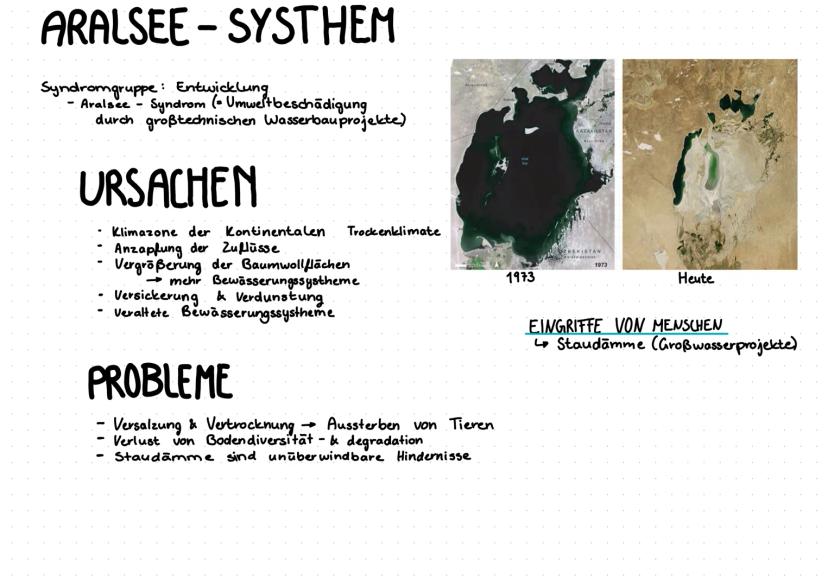 ARALSEE - SYSTHEM
Syndromgruppe: Entwicklung
- Aralsee - Syndrom (= Umweltbeschädigung
durch großtechnischen Wasserbauprojekte)
URSACHEN
- Klimazone der Kontinentalen Trockenklimate
- Anzapfung der Zuflüsse
- Vergrößerung der Baumwollflächen
→ mehr Bewässerungssystheme
- Versickerung & Verdunstung
- veraltete Bewässerungssystheme
KAZAKHSTAN
UZBEKISTAN
1973
1973
Heute
EINGRIFFE VON MENSCHEN
↳ Staudämme (Großwasserprojekte)
PROBLEME
- Versalzung & Vertrocknung → Aussterben von Tieren
- Verlust von Bodendiversität - & degradation
- Staudämme sind unüberwindbare Hindernisse